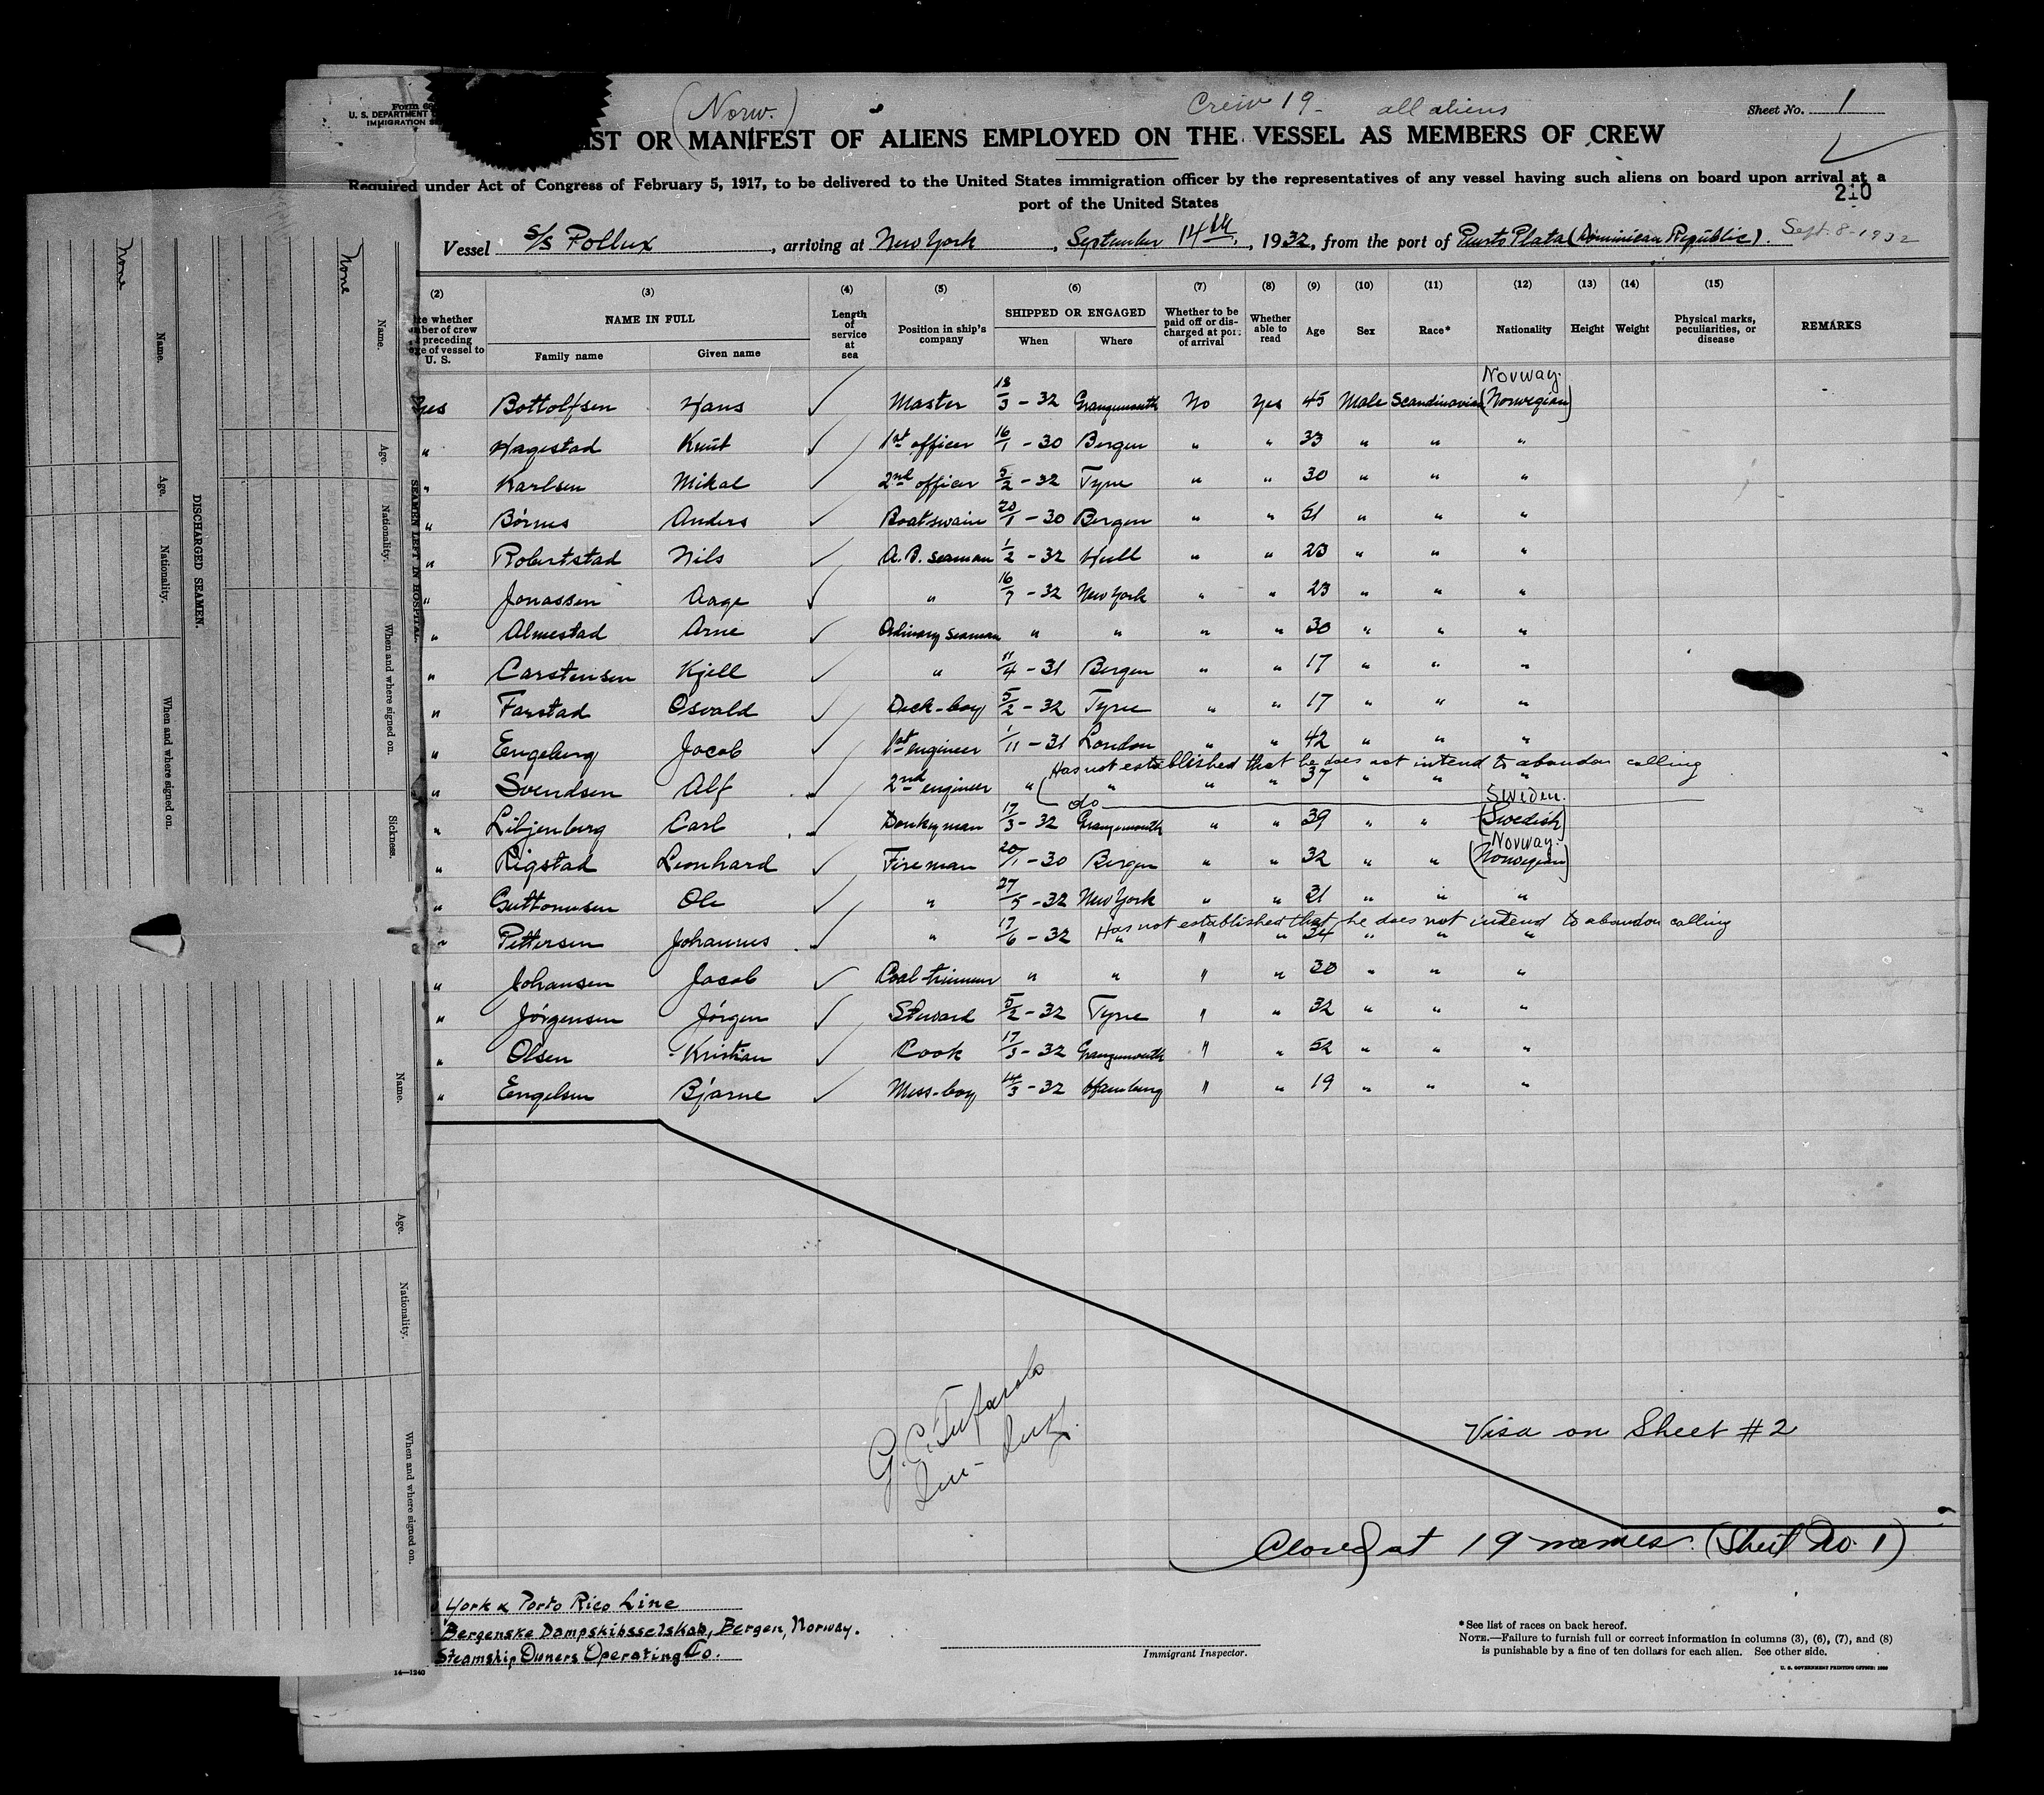 Form 68
U. S. DEPARTMENT
IMMIGRATION S
(Norw.)
Crew 19 - all aliens
Sheet No. 1
IST OR MANIFEST OF ALIENS EMPLOYED ON THE VESSEL AS MEMBERS OF CREW
Required under Act of Congress of February 5, 1917, to be delivered to the United States immigration officer by the representatives of any vessel having such aliens on board upon arrival at a
port of the United States
210
Vessel S/S Pollux, arriving at New York, September 14th, 1932, from the port of Puerto Plata (Dominican Republic). Sept. 8-1932
(2) (3) (4) (5) (6) (7) (8) (9) (10) (11) (12) (13) (14) (15)
te whether
ber of crew
preceding
ge of vessel to
U. S.
NAME IN FULL
Family name Given name
Length
of
service
at
sea
Position in ship's
company
SHIPPED OR ENGAGED
When Where
Whether to be
paid off or dis-
charged at port
of arrival
Whether
able to
read
Age Sex Race* Nationality Height Weight
Physical marks,
peculiarities, or
disease
REMARKS
Norway.
Yes Bottolfsen Hans ✓ Master 18/3 - 32 Grangemouth No Yes 45 Male Scandinavian (Norwegian)
" Hagestad Knut ✓ 1st officer 16/1 - 30 Bergen " " 33 " " "
" Karlsen Mikal ✓ 2nd officer 5/2 - 32 Tyne " " 30 " " "
" Börnes Anders ✓ Boatswain 20/1 - 30 Bergen " " 51 " " "
" Robertstad Nils ✓ A.B. Seaman 1/2 - 32 Hull " " 23 " " "
" Jonassen Aage ✓ " 16/7 - 32 New York " " 23 " " "
" Almestad Arne ✓ Ordinary Seaman " " " " 30 " " "
" Carstensen Kjell ✓ " 11/4 - 31 Bergen " " 17 " " "
" Farstad Osvald ✓ Deck-boy 5/2 - 32 Tyne " " 17 " " "
" Engeberg Jacob ✓ 1st engineer 1/11 - 31 London " " 42 " " "
Has not established that he does not intend to abandon calling
" Svendsen Alf ✓ 2nd engineer " " " " 37 " " "
do
Sweden.
" Liljenberg Carl ✓ Donkeyman 17/3 - 32 Grangemouth " " 39 " " (Swedish)
Norway.
" Rigstad Leonhard ✓ Fireman 20/1 - 30 Bergen " " 32 " " (Norwegian)
" Guttormsen Ole ✓ " 27/5 - 32 New York " " 21 " " "
Has not established that he does not intend to abandon calling
" Pettersen Johannes ✓ " 17/6 - 32 " " " 34 " " "
" Johansen Jacob ✓ Coal-trimmer " " " " 30 " " "
" Jörgensen Jörgen ✓ Steward 5/2 - 32 Tyne " " 32 " " "
" Olsen Kristian ✓ Cook 17/3 - 32 Grangemouth " " 52 " " "
" Engelsen Bjarne ✓ Mess-boy 14/3 - 32 Hamburg " " 19 " " "
G. C. Tufarolo
Visa on Sheet #2
Closed at 19 names. (Sheet No. 1)
York & Porto Rico Line
Bergenske Dampskibsselskab, Bergen, Norway.
Steamship Owners Operating Co.
14—1240
Immigrant Inspector.
*See list of races on back hereof.
NOTE.—Failure to furnish full or correct information in columns (3), (6), (7), and (8)
is punishable by a fine of ten dollars for each alien. See other side.
U. S. GOVERNMENT PRINTING OFFICE:
SEAMEN LEFT IN HOSPITAL.
Name. Age. Nationality. When and where signed on. Sickness.
None
DISCHARGED SEAMEN.
Name. Age. Nationality. When and where signed on.
None
Name. Age. Nationality. When and where signed on.